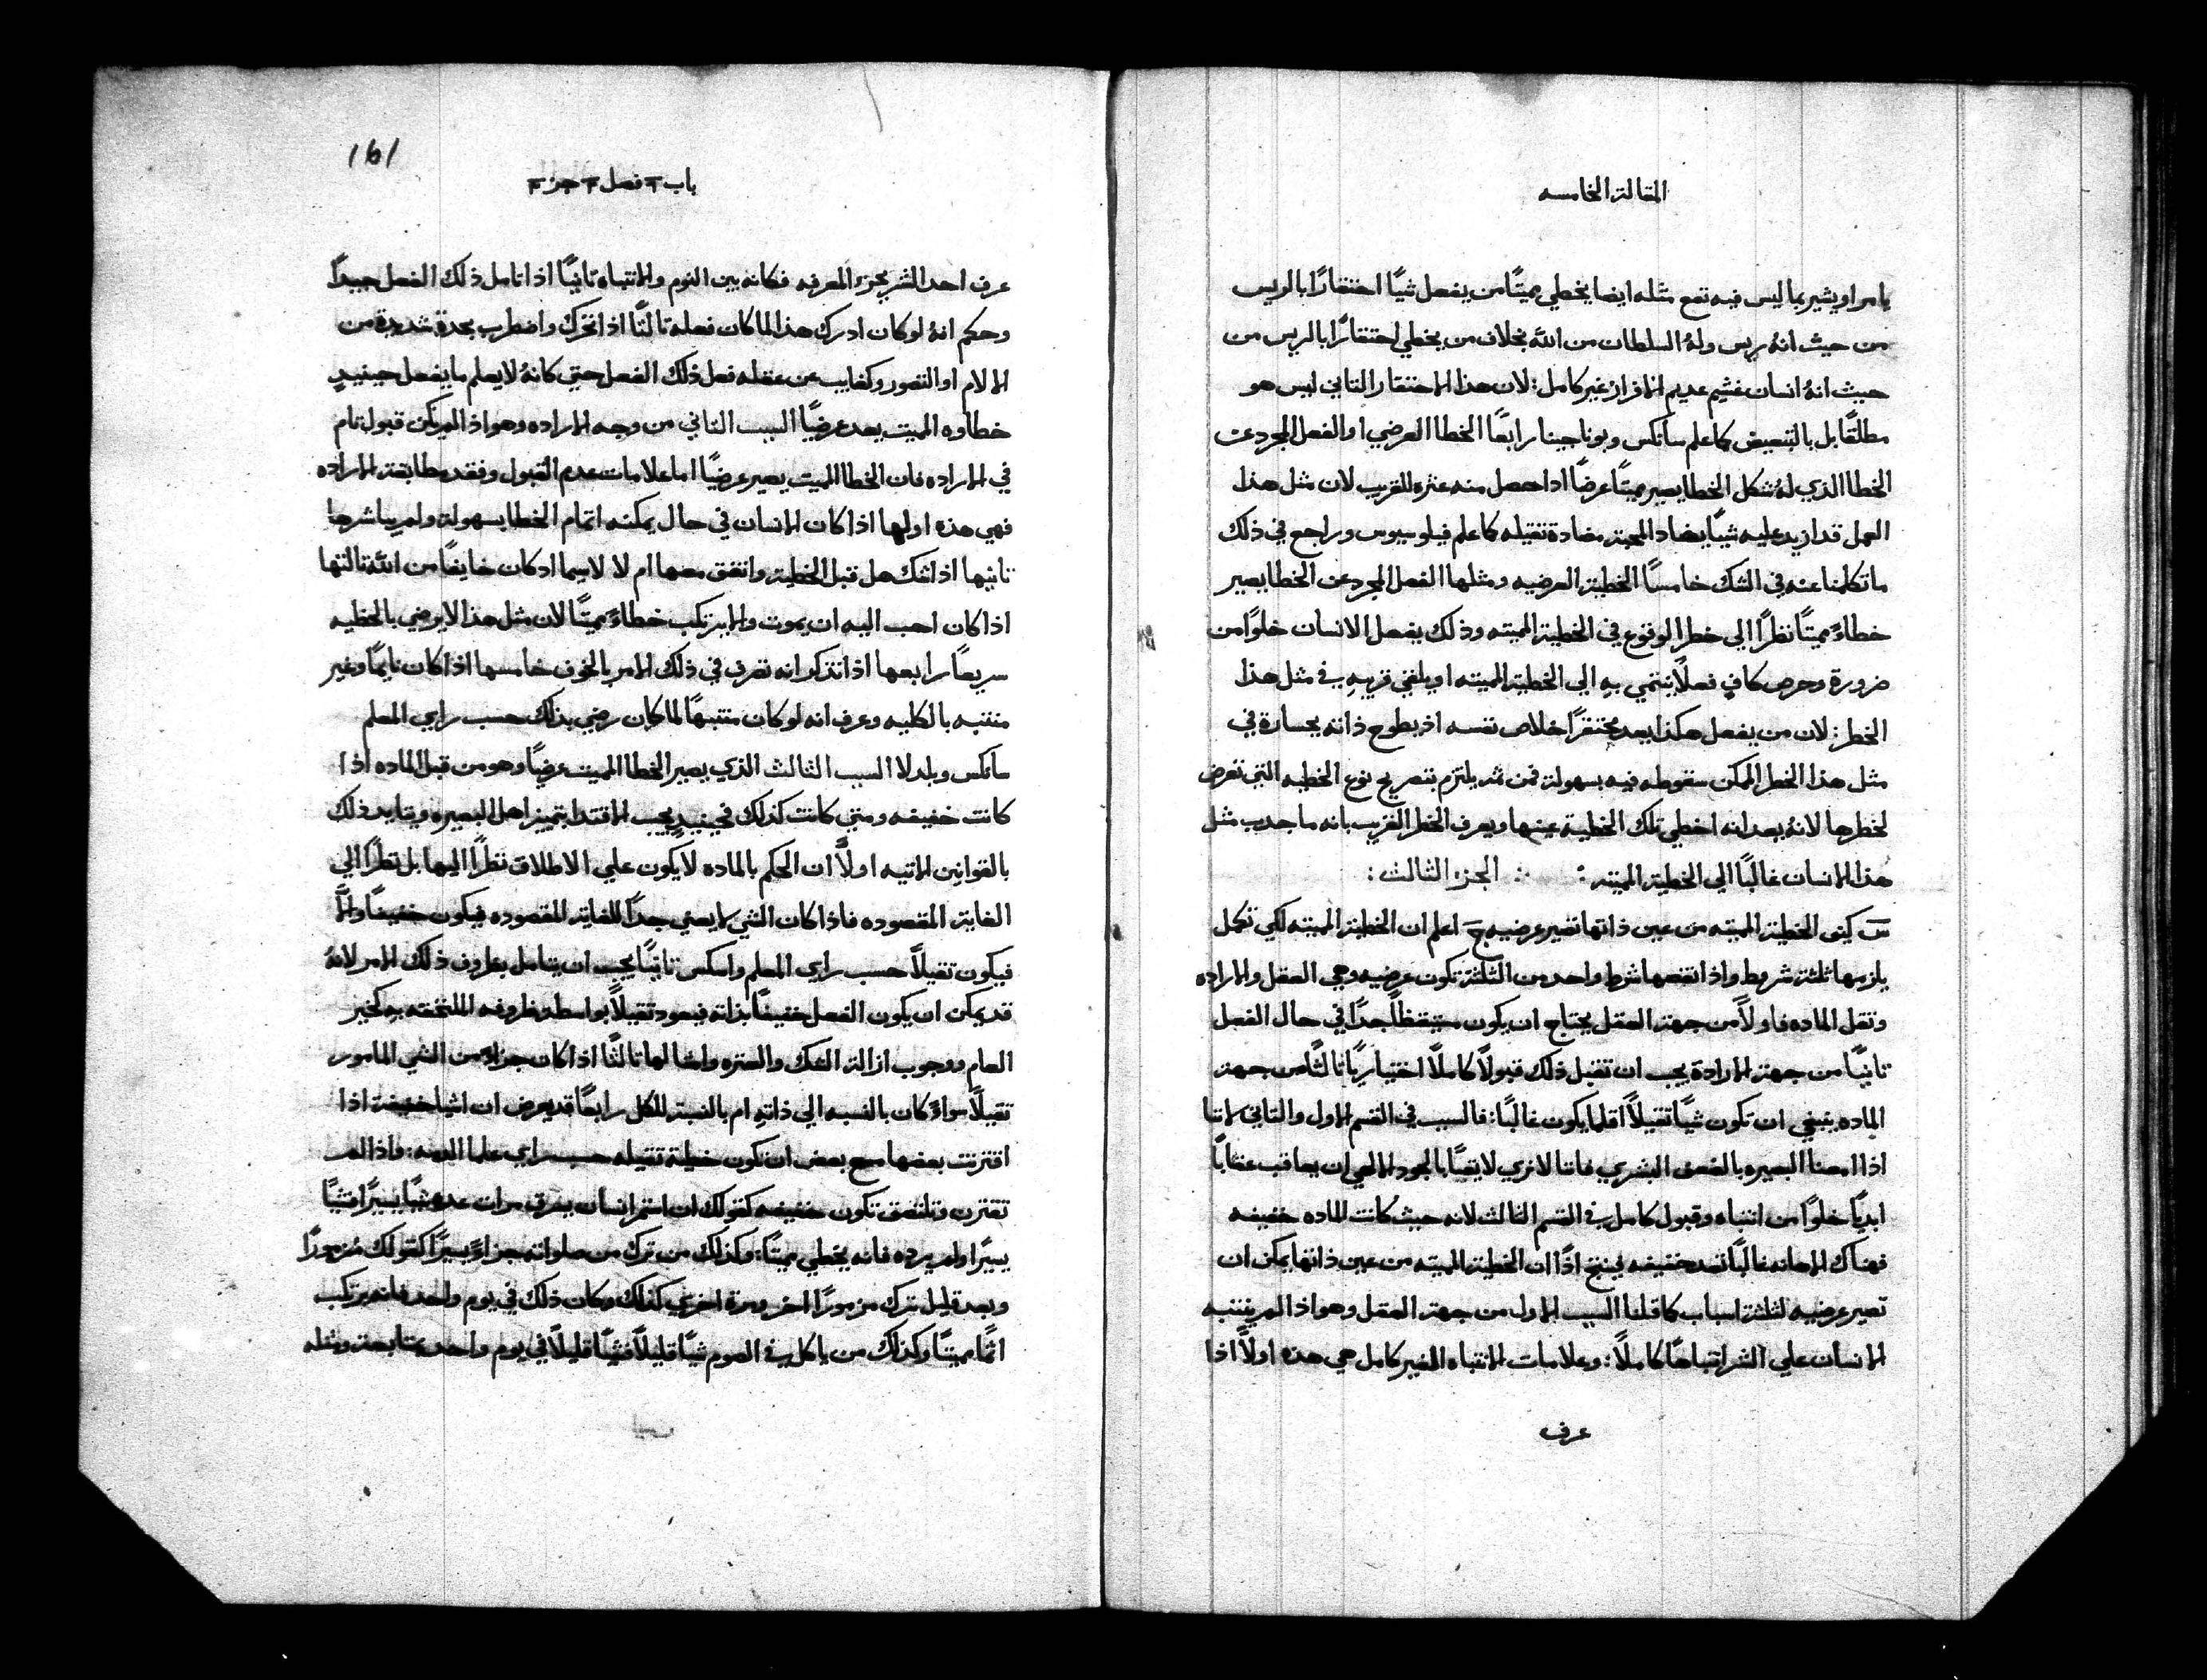 المقالة الخامسه
يامر او يشير بما ليس فيه تمع مثله ايضا يخطي مميتًا من يفعل شيًا احتقارًا بالريس
من حيث انهُ ريس ولهُ السلطان من اللّه بخلاف من يخطي احتقارًا بالريس من
حيث انهُ انسان غشيم عديم الافراز غير كامل: لان هذا الاحتقار الثاني ليس هو
مطلقًا بل بالتبعيض كما علم سانكس وبوناجينا رابعًا الخطا العرضي او الفعل المجرد عن
الخطا الذي لهُ شكل الخطا يصير مميتًا عرضًا اذا حصل منه عثره للقريب لان مثل هذا
العمل قد ازيد عليه شيًا يضاد المحبة مضادة ثقيله كما علم فيلوسيوس وراجع في ذلك
ما تكلمنا عنه في الشك خامسًا الخطية العرضيه ومثلها الفعل المجرد عن الخطا يصير
خطاءً مميتًا نظرًا الي خطر الوقوع في الخطية المميته وذلك يفعل الانسان خلوًا من
ضرورة وحرص كافٍ فعلًا ينتمي بهِ الي الخطية المميته او يلقي قريبهِ في مثل هذا
الخطر: لان من يفعل هكذا يعد محتقرًا خلاص نفسه اذ يطوح ذاته بجسارة في
مثل هذا الخطر الممكن سقوطه فيه بسهولة فمن ثم يلتزم بتصريح نوع الخطيه التي تعرض
لخطرها لانهُ بعد انه اخطي تلك الخطية عينها ويعرف الخطر القريب بانه ما جدب مثل
هذا الانسان غالبًا الي الخطية المميته: ∴ الجزء الثالث:
س كيف الخطية المميته من عين ذاتها تصير عرضيه ج اعلم ان الخطية المميته لكي تكمل
يلزمها ثلثة شروط واذا نقصها شرط واحد من الثلثة تكون عرضيه وهي العقل والاراده
وثقل الماده فاولًا من جهة العقل يحتاج ان يكون مستيقظًا جدًا في حال الفعل
ثانيًا من جهة الارادة يجب ان تقبل ذلك قبولًا كاملًا اختياريًا ثالثًا من جهة
الماده ينبغي ان تكون شيًا ثقيلًا اقلما يكون غالبًا: فالسبب في القسم الاول والثاني لاننا
اذا امعنا البصيره بالضعف البشري فاننا لا نري لايقًا بالجود الالهي ان يعاقب عقابًا
ابديًا خلوًا من انتباه وقبول كامل في القسم الثالث لانه حيث كانت الماده خفيفه
فهناك الاهانه غالبًا تعد خفيفه ينتج اذًا ان الخطية المميته من عين ذاتها يمكن ان
تصير عرضيه لثلثة اسباب كما قلنا السبب الاول من جهة العقل وهو اذا لم ينتبه
الانسان علي الشر انتباهًا كاملًا: وعلامات الانتباه الغير كامل هي هذه اولًا اذا
عرف
161
باب ٣ فصل ٣ جزء ٣
عرف احد الشر بجزء المعرفه فكانه بين النوم والانتباه ثانيًا اذا تامل ذلك الفعل جيدًا
وحكم انهُ لو كان ادرك هذا لما كان فعله ثالثًا اذا تحرك واضطرب بحدة شديدة من
الالام او التصور وكغايب عن عقله فعل ذلك الفعل حتي كانهُ لا يعلم ما يفعل حينيدٍ
خطاوه المميت يعد عرضيًا السبب الثاني من وجه الاراده وهو اذا لم يكن قبول تام
في الاراده فان الخطا المميت يصير عرضيًا اما علامات عدم القبول وفقد مطابقة الاراده
فهي هذه اولها اذا كان الانسان في حال يمكنه اتمام الخطا بسهولة ولم يباشرها
ثانيها اذا شك هل قبل الخطية واتفق معها ام لا لاسيما اذ كان خايفًا من اللّه ثالثها
اذا كان احب اليه ان يموت ولا يرتكب خطاءً مميتًا لان مثل هذا لا يرضي بالخطيه
سريعًا رابعها اذا تذكر انه تصرف في ذلك الامر بالخوف خامسها اذا كان نايمًا وغير
منتبه بالكليه وعرف انه لو كان منتبهًا لما كان رضي بذلك حسب راي المعلم
سانكس وبلدلا السبب الثالث الذي يصير الخطا المميت عرضيًا وهو من قبل الماده اذا
كانت خفيفه ومتي كانت كذلك فحينيدٍ يجب الاقتدا بتميز اهل البصيره ويقايد ذلك
بالقوانين الاتيه اولًا ان الحكم بالماده لا يكون علي الاطلاق نظرًا اليها بل نظرًا الي
الغاية المقصوده فاذا كان الشي لا يعني جدًا للغاية المقصوده فيكون خفيفًا والّا
فيكون ثقيلًا حسب راي المعلم واسكس ثانيًا يجب ان يتامل بظروف ذلك الامر لانهُ
قد يمكن ان يكون الفعل خفيفًا بذاته فيعود ثقيلًا بواسطة ظروفه الملتحقه بهِ كخير
العام ووجوب ازالة الشك والعثره وامثالها ثالثًا اذا كان جزاءً من الشي المامور
ثقيلًا سواءً كان بالنسبه الي ذاتهِ ام بالنسبة للكل رابعًا قد يعرض ان اشيا خفيفة اذا
اقترنت بعضها مع بعض ان تكون خطية ثقيله حسب راي علما الذمه: واذا لم
تقترن وتلتصق تكون خفيفه كقولك ان استمر انسان يسرق مرات عده شيًا يسيرًا فشيًا
يسيرًا ولم يرده فانه يخطي مميتًا: وكذلك من ترك من صلواته جزاءً يسيرًا كقولك مُزمورًا
وبعد قليل ترك مزمورًا اخر ومرة اخري كذلك وكان ذلك في يوم واحد فانه يرتكب
اثمًا مميتًا وكذلك من ياكل في الصوم شيًا قليلًا فشيًا قليلًا في يوم واحد متابعة ومثله